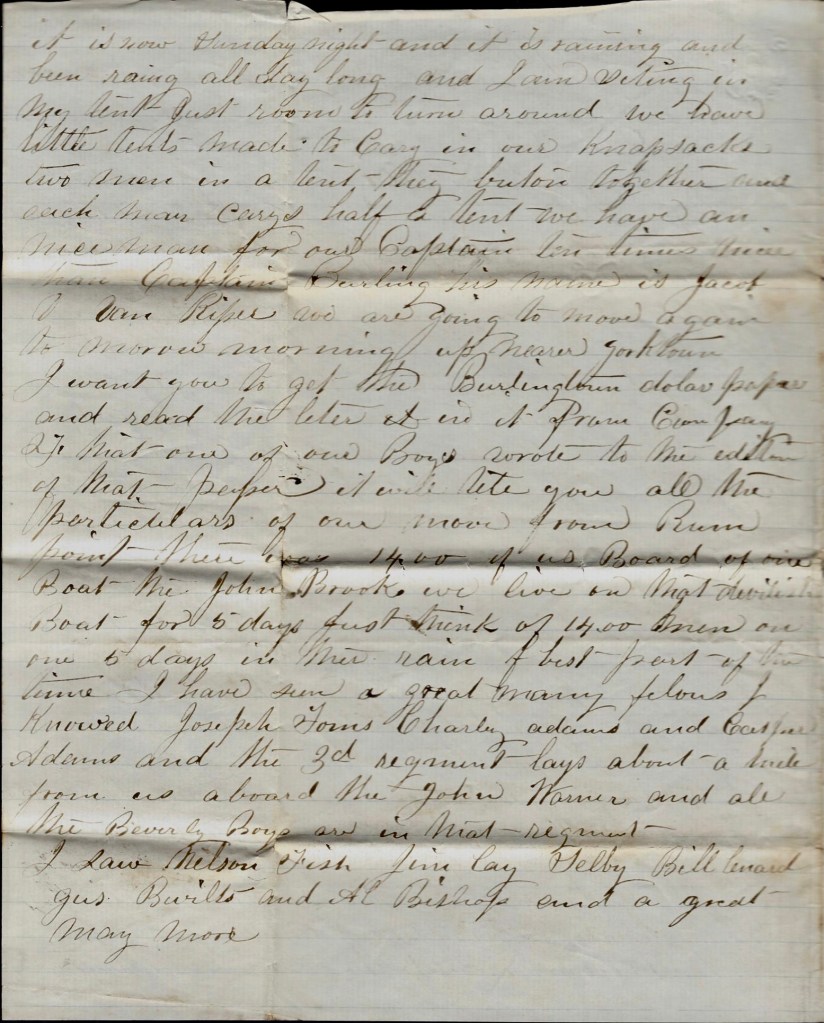 it is now Sunday night and it is raining and
been raing all day long and I am siting in
my tent Just room to turn around we have
little tents made to Cary in our Knapsacks
two men in a tent they buton together and
each man Carys half a tent we have an
nice man for our Captain ten times nice
than Captain Burling his name is Jacob
J Van Riper we are going to move again
to morow morning up nearer yorktown
I want you to get the Burlingtown dolar paper
and read the leter in it From Company
that one of our Boys wrote to the editor
of that paper it will tele you all the
particulars of our move from Rum
point there was 1400 of us Board of one
Boat the John Brooks we live on that devilish
Boat for 5 days Just think of 1400 men on
one 5 days in the rain best part of the
time I have seen a great many felows I
Knowed Joseph Toms Charley adams and Casper
Adams and the 3d regment lays about a mile
from us aboard the John Warner and all
the Beverly Boys are in that regment
I saw Nelson Fish Jim lay Selby Bill
gus and Al Bishop and a great
may more